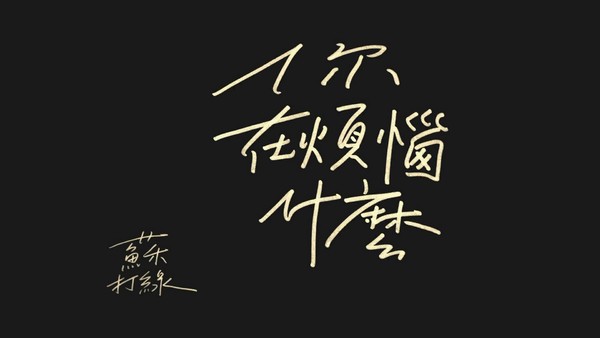 你
在煩惱
什麼
蘇
打綠